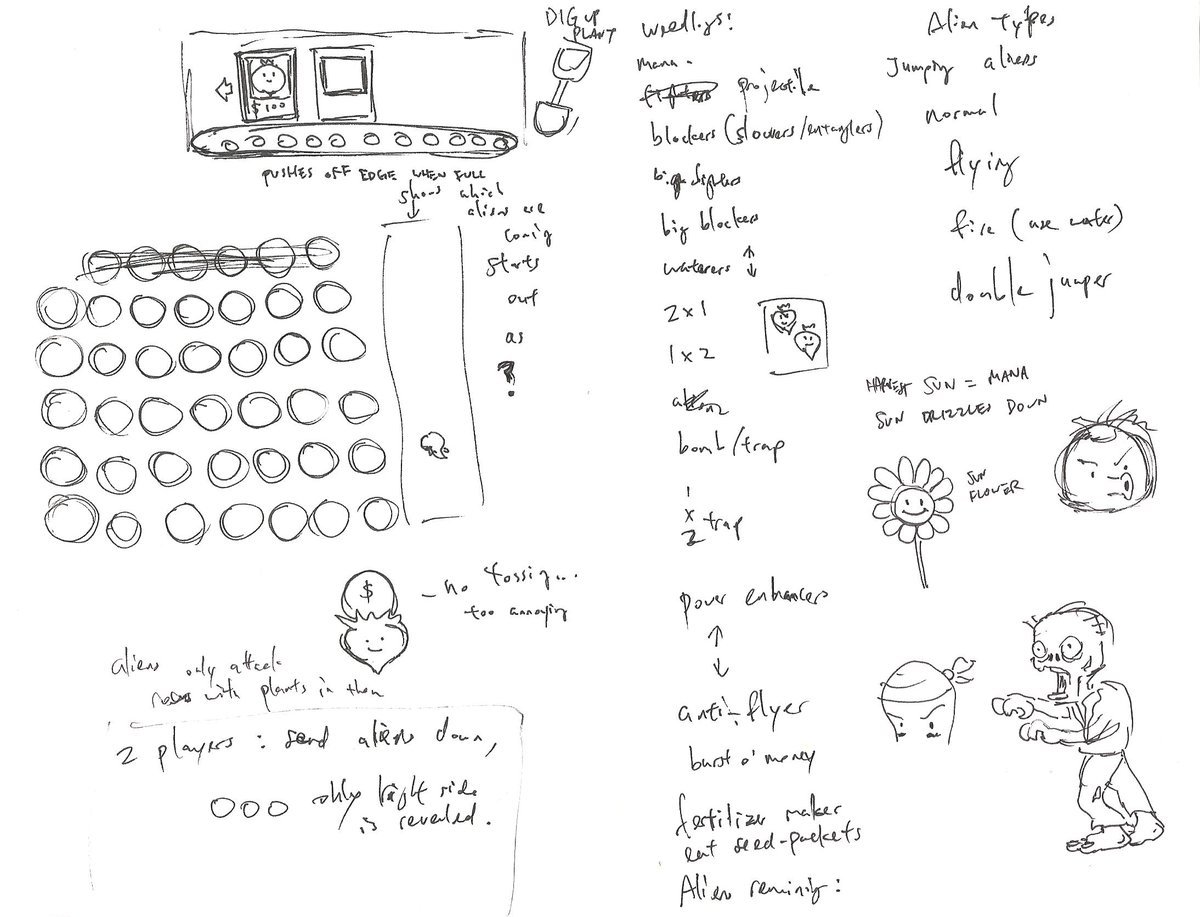 DIG UP
PLANT
$100
PUSHES OFF EDGE WHEN FULL
shows which
aliens are
coming
starts
out
as
?
$
- no tossing...
too annoying
aliens only attack
with plants in them
2 players: send aliens down,
only right side
is revealed.
weedlings:
mana -
projectile
blockers (slowers/entanglers)
big fighters
big blockers
waterers
2x1
1x2
bomb/trap
1
x
2 trap
power enhancers
anti-flyer
burst o' money
fertilizer maker
eat seed-packets
Alien reminity:
Alien types
Jumping aliens
normal
flying
fire (use water)
double jumper
HARVEST SUN = MANA
SUN DRIZZLES DOWN
SUN
FLOWER